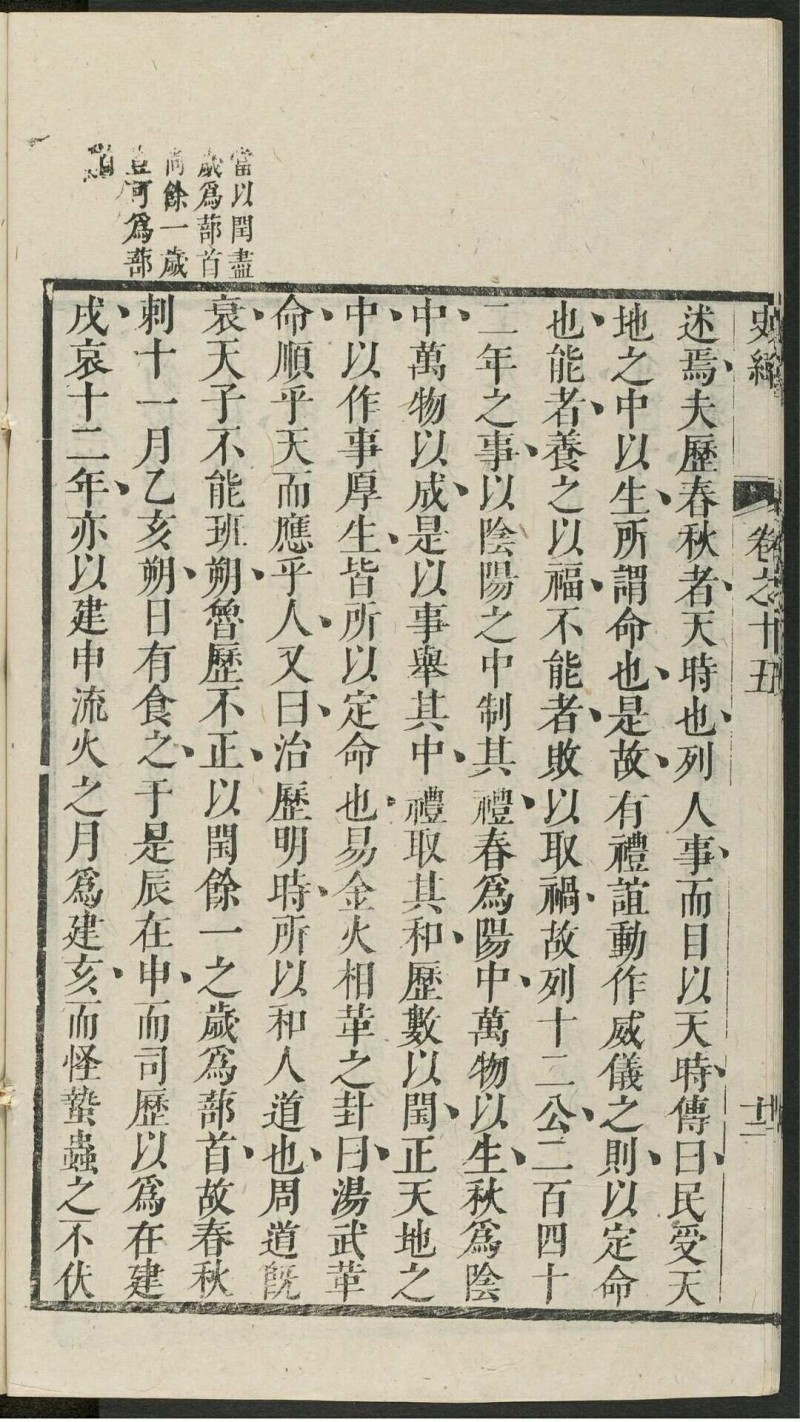 史緯
卷之十五
十二
當以閏盡
歲爲蔀首
尚餘一歲
豈可爲蔀
首
述焉夫歷春秋者天時也列人事而目以天時傳曰民受天
地之中以生所謂命也是故有禮誼動作威儀之則以定命
也能者養之以福不能者敗以取禍故列十二公二百四十
二年之事以陰陽之中制其禮春爲陽中萬物以生秋爲陰
中萬物以成是以事舉其中禮取其和歷數以閏正天地之
中以作事厚生皆所以定命也易金火相革之卦曰湯武革
命順乎天而應乎人又曰治歷明時所以和人道也周道既
衰天子不能班朔魯歷不正以閏餘一之歲爲蔀首故春秋
刺十一月乙亥朔日有食之于是辰在申而司歷以爲在建
戌哀十二年亦以建申流火之月爲建亥而怪蟄蟲之不伏